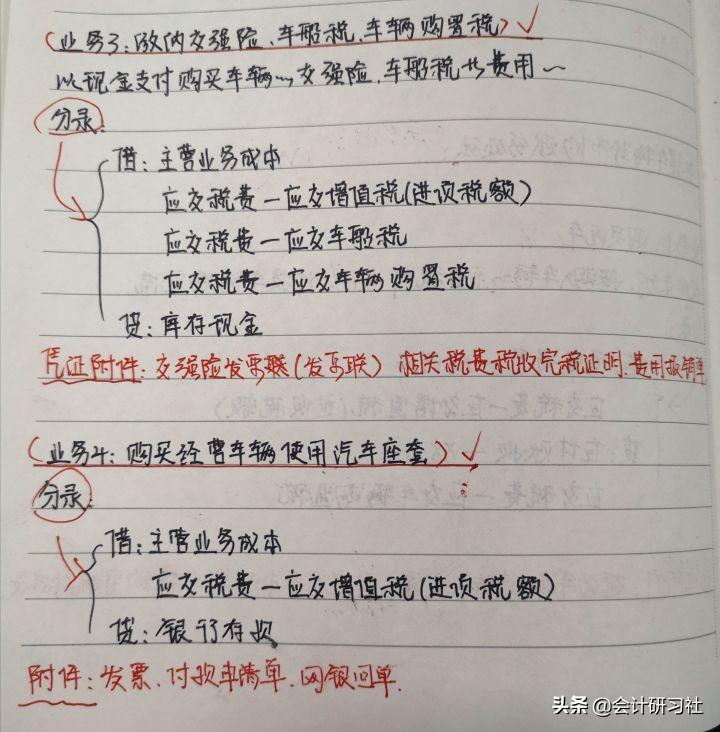 (业务3:缴纳交强险、车船税、车辆购置税)
以现金支付购买车辆~交强险、车船税共费用~
分录:
借:主营业务成本
应交税费—应交增值税(进项税额)
应交税费—应交车船税
应交税费—应交车辆购置税
贷:库存现金
凭证附件:交强险发票联(发票联) 相关税费税收完税证明、费用报销单
(业务4:购买经营车辆使用汽车座套)
分录:
借:主营业务成本
应交税费—应交增值税(进项税额)
贷:银行存款
附件:发票、付款申请单、网银回单.
头条 @会计研习社